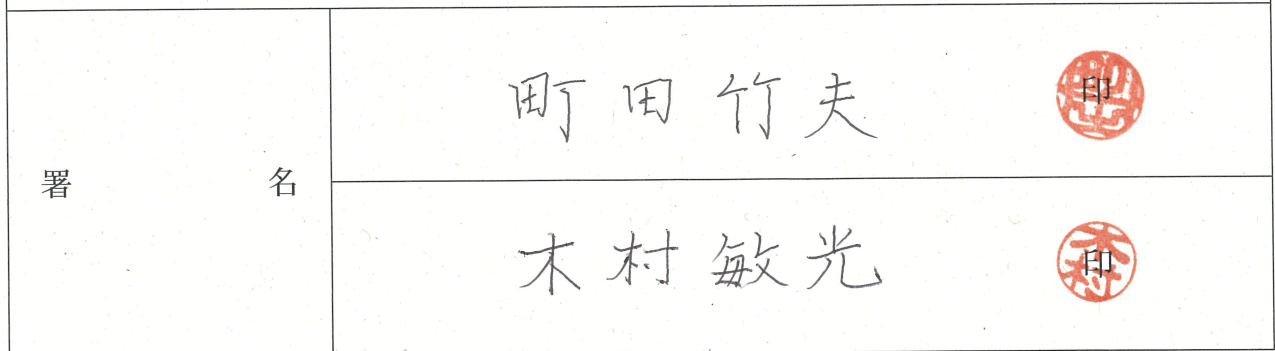 署名
町田竹夫 印
木村敏光 印
木村